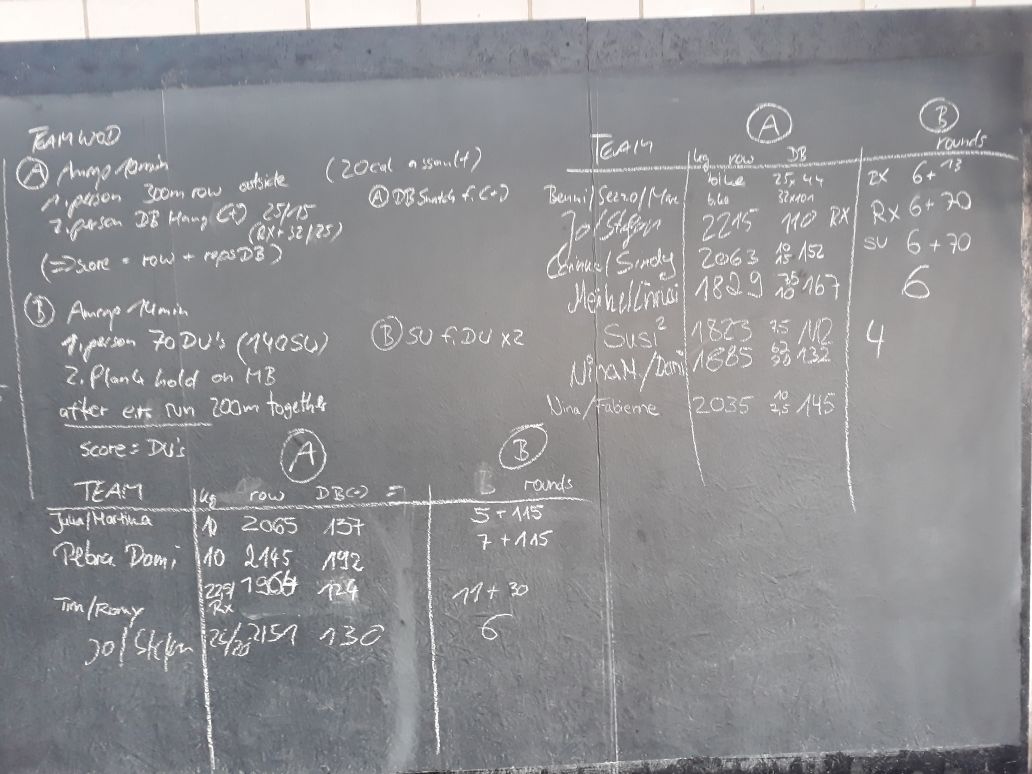 TEAM WOD
Ⓐ Amrap 10min (20cal assault)
1. person 300m row outside
2. person DB Hang C+J 25/15 Ⓐ DB Snatch f. C+J
(RX + 32/25)
(=> score = row + reps DB)
Ⓑ Amrap 14min
1. person 70 DU's (140SU) Ⓑ SU f. DU x2
2. Plank hold on MB
after run 200m together
score = DU's
Ⓐ Ⓑ
TEAM kg row DB rounds
Julia/Martina 10 2065 137 5+115
Petra Domi 10 2145 192 7+115
Tim/Romy Rx 1964 124 11+30
Jo/Stefan 25/20 2151 130 6
Ⓐ Ⓑ
TEAM kg row DB rounds
Benni/ bike 25x44 RX 6+13
Jo/Stefan 2215 110 RX Rx 6+70
/Sindy 2063 10 15 152 SU 6+70
1829 10 167 6
Susi² 1823 112 4
Nina M./Domi 1685 132
Nina/Fabienne 2035 10 145